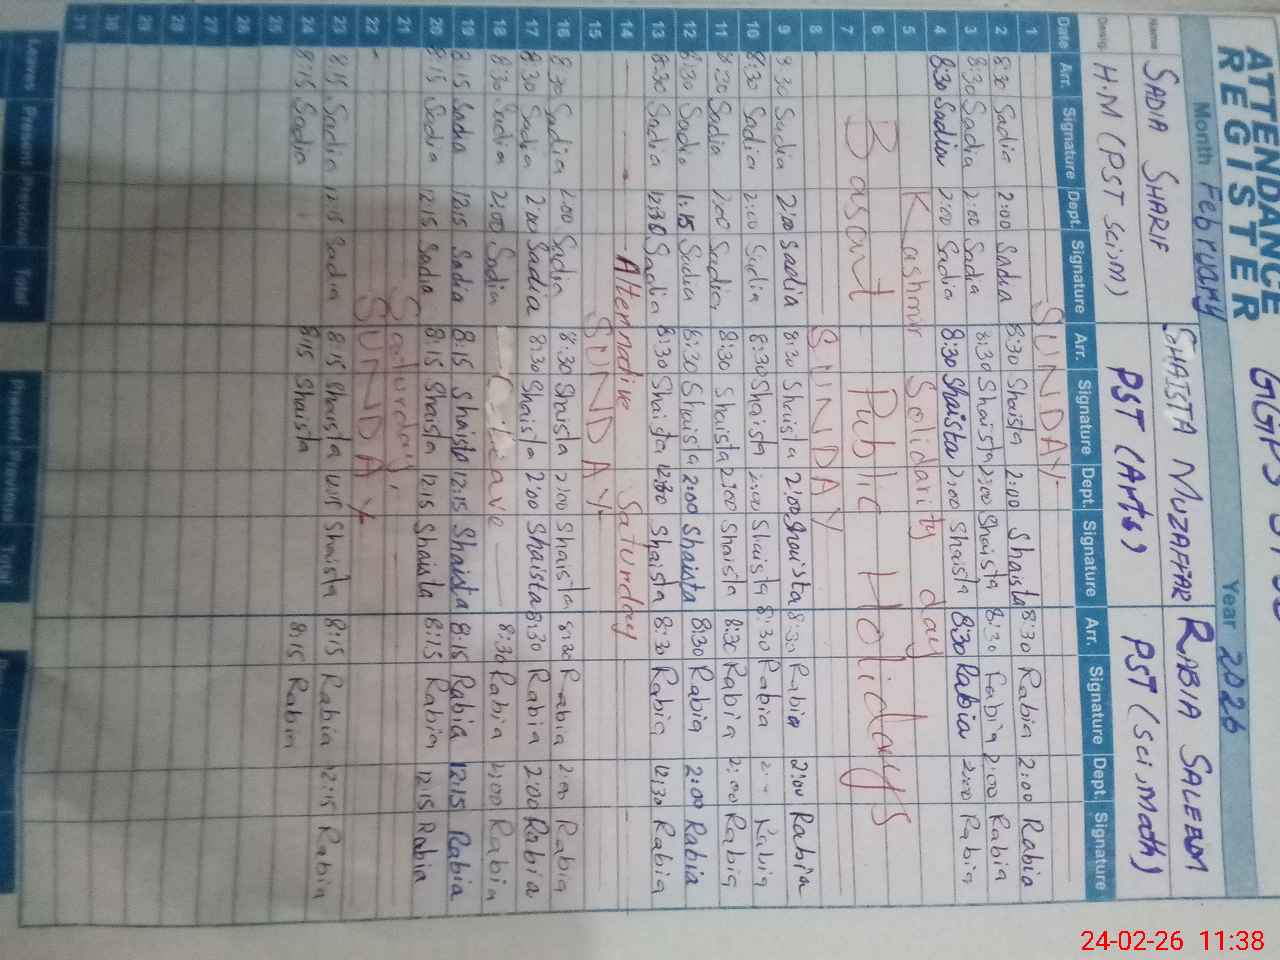 ATTENDANCE
REGISTER
Month February Year 2026
Name SADIA SHARIF SHAISTA MUZAFFAR RABIA SALEEM
Desig. H.M (PST sci,m) PST (Arts) PST (sci,Math)
Date Arr. Signature Dept. Signature Arr. Signature Dept. Signature Arr. Signature Dept. Signature
1 SUNDAY
2 8:30 Sadia 2:00 Sadia 8:30 Shaista 2:00 Shaista 8:30 Rabia 2:00 Rabia
3 8:30 Sadia 2:00 Sadia 8:30 Shaista 2:00 Shaista 8:30 Rabia 2:00 Rabia
4 8:30 Sadia 2:00 Sadia 8:30 Shaista 2:00 Shaista 8:30 Rabia 2:00 Rabia
5 Kashmir Solidarity day
6 Basant Public Holidays
7
8 SUNDAY
9 8:30 Sadia 2:00 Sadia 8:30 Shaista 2:00 Shaista 8:30 Rabia 2:00 Rabia
10 8:30 Sadia 2:00 Sadia 8:30 Shaista 2:00 Shaista 8:30 Rabia Rabia
11 8:30 Sadia 2:00 Sadia 8:30 Shaista 2:00 Shaista 8:30 Rabia 2:00 Rabia
12 8:30 Sadia 1:15 Sadia 8:30 Shaista 2:00 Shaista 8:30 Rabia 2:00 Rabia
13 8:30 Sadia 12:30 Sadia 8:30 Shaista 12:30 Shaista 8:30 Rabia 12:30 Rabia
14 Alternative Saturday
15 SUNDAY
16 8:30 Sadia 2:00 Sadia 8:30 Shaista 2:00 Shaista 8:30 Rabia 2:00 Rabia
17 8:30 Sadia 2:00 Sadia 8:30 Shaista 2:00 Shaista 8:30 Rabia 2:00 Rabia
18 8:30 Sadia 2:00 Sadia Leave 8:30 Rabia 2:00 Rabia
19 8:15 Sadia 12:15 Sadia 8:15 Shaista 12:15 Shaista 8:15 Rabia 12:15 Rabia
20 8:15 Sadia 12:15 Sadia 8:15 Shaista 12:15 Shaista 8:15 Rabia 12:15 Rabia
21 Saturday
22 SUNDAY
23 8:15 Sadia 12:15 Sadia 8:15 Shaista 12:15 Shaista 8:15 Rabia 12:15 Rabia
24 8:15 Sadia 8:15 Shaista 8:15 Rabia
25
26
27
28
29
30
31
Leaves Present Previous Total Present Previous Total
24-02-26 11:38